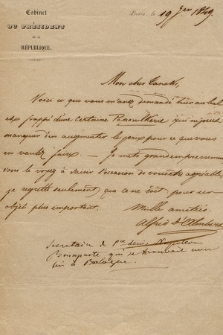 Cabinet
DU PRÉSIDENT
DE LA
RÉPUBLIQUE.
Paris, le 19 Jan 1849.
Mon cher
Voici ce que vous m'avez demandé
chez frappé d'une certaine
manquer d'en augmenter le prix pour ce que vous
en voulez faire. — Je mets grand empressement
vous le voyez à saisir l'occasion de vous être agréable,
je regrette seulement que ce ne soit pour un
objet plus important.
Mille amitiés
Alfred d'
Secrétaire de Louis Napoléon
Bonaparte, qui se trouvait avec
lui à Boulogne